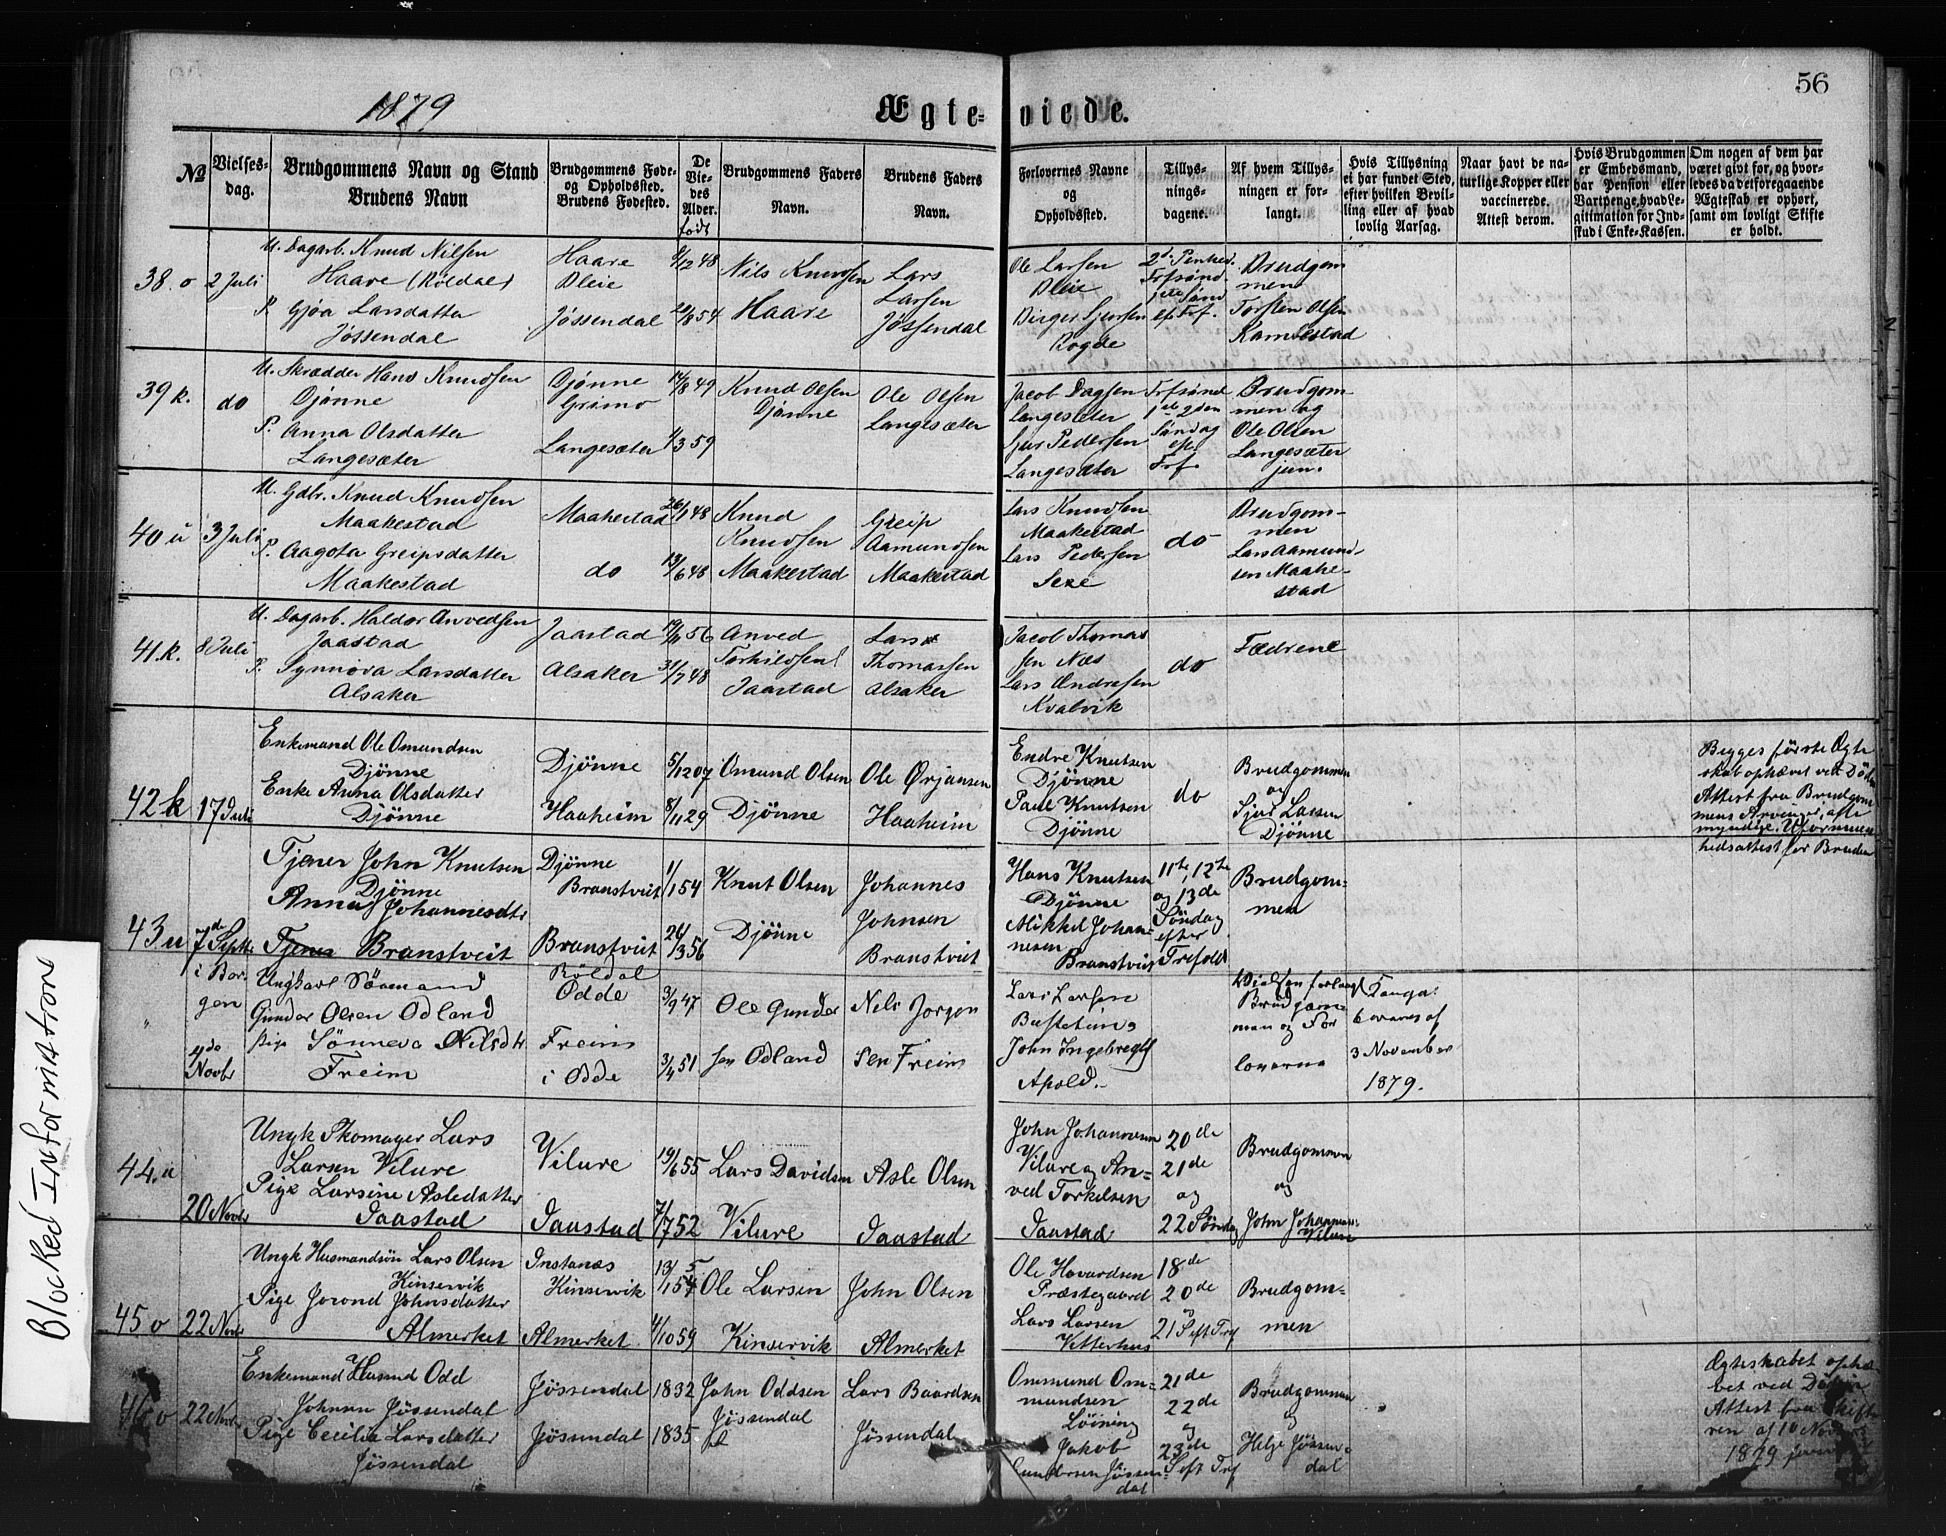 56
1879
Ægteviede.
№
Vielses-
dag.
Brudgommens Navn og Stand
Brudens Navn
Brudgommens Føde-
og Opholdssted.
Brudens Fødested.
De
Vie-
des
Alder.
født
Brudgommens Faders
Navn.
Brudens Faders
Navn.
Forlovernes Navne
og
Opholdssted.
Tillys-
nings-
dagene.
Af hvem Tillys-
ningen er for-
langt.
Hvis Tillysning
ei har fundet Sted,
efter hvilken Bevil-
ling eller af hvad
lovlig Aarsag.
Naar havt de na-
turlige Kopper eller
vaccinerede.
Attest derom.
Hvis Brudgommen
er Embedsmand,
har Pension eller
Vartpenge, hvad Le-
gitimation for Ind-
skud i Enke-Kassen.
Om nogen af dem har
været givt før, og hvor-
ledes da det foregaaende
Ægteskab er ophørt,
samt om lovligt Skifte
er holdt.
38. o
2 Juli
U. Dagarb. Knud Nilsen
Haare (Røldal)
P. Gjøa Larsdatter
Jøssendal
Haare
Bleie
Jøssendal
9/12 48
21/8 54
Nils Knudsen
Haare
Lars
Larsen
Jøssendal
Ole Larsen
Bleie
Birger Sjursen
Rogde
Brudgom
men
Torsten Olsen
Kambestad
39 k.
do
U. Skrædder Hans Knudsen
Djønne
P. Anna Olsdatter
Langesæter
Djønne
Grimo
Langesæter
14/8 49
1/3 59
Knud Olsen
Djønne
Ole Olsen
Langesæter
Jacob Dagsen
Langesæter
Sjur Pedersen
Langesæter
Trfsønd
1ste 2den
Søndag
eft.
Trf.
Brudgom
men og
Ole Olsen
Langesæter
jun.
40 u
3 Juli
U. Gdbr. Knud Knudsen
Maakestad
P. Aagota Greipsdatter
Maakestad
Maakestad
do
26/1 48
13/6 48
Knud
Knudsen
Maakestad
Greip
Aamundsen
Maakestad
Lars Knudsen
Maakestad
Lars Pedersen
Sexe
do
Brudgom-
men
Lars Aamund-
sen Maake-
stad
41. k.
8 Juli
U. Dagarb. Haldor Anvedsen
Jaastad
P. Synnøva Larsdatter
Alsaker
Jaastad
Alsaker
19/11 56
31/7 48
Anved
Torkildsen
Jaastad
Lars
Thomassen
Alsaker
Jacob Thomas
sen Næs
Lars Andresen
Kvalvik
do
Fædrene
42 k
17 Juli
Enkemand Ole Omundsen
Djönne
Enke Anna Olsdatter
Djönne
Djönne
Haaheim
5/12 07
8/11 29
Omund Olsen
Djönne
Ole Ørjansen
Haaheim
Endre Knutsen
Djönne
Paul Knutsen
Djönne
do
Brudgommen
og
Sjur Lassen
Djönne
Begges förste Ægte
skab ophævet ved Död
Attest fra Brudgom
mens Arvinger, alle
myndige. Uformuen
hedsattest for Bruden
43 u
7de Septbr
Tjener John Knutsen
Djönne
Anna Johannesdtr
Tjener Branstveit
Djönne
Branstveit
Branstveit
1/1 54
26/3 56
Knut Olsen
Djönne
Johannes
Johnsen
Branstveit
Hans Knutsen
Djönne
Mikkel Johan-
nesen
Branstveit
11te, 12te
og 13de
Söndag
efter
Trefold
Brudgom-
men
"
i Ber-
gen
4de
Novbr
Ungkarl Sömand
Gunder Olsen Odland
pige Sönneva Nilsdtr
Freim
Röldal
Odde
Freim
i Odde
3/9 47
3/4 51
Ole Gunder
sen Odland
Nils Jörgen
sen Freim
Lars Larsen
Bustetun,
John Ingebregts
Apold.
Vielsen forlangt
Brudgom
men og For
loverne
Konge:
3 November
1879.
44. u
20 Novbr
Ungk Skomager Lars
Larsen Vilure
Pige Larsine Asledatter
Jaastad
Vilure
Jaastad
19/6 55
7/7 52
Lars Davidsen
Vilure
Asle Olsen
Jaastad
John Johannesen
Vilure og An-
ved Torkelsen
Jaastad
20de
21de
og
22 Söndag
Brudgommen
og
John Johannes:
Vilure
45 o
22 Novbr
Ungk Husmandsön Lars Olsen
Kinservik
Pige Jorond Johnsdatter
Almerket
Instanæs
Kinservik
Almerket
13/1 54
4/10 59
Ole Larsen
Kinservik
John Olsen
Almerket
Ole Havardsen
Præstegaard
Lars Larsen
Vetterhus
18de
20de
og
21 S eft Trf
Brudgom-
men
46 o
22 Novbr
Enkemand Husmd Odd
Johnsen Jössendal
Pige Cecilia Larsdatter
Jössendal
Jössendal
Jössendal
1832
1835
John Oddsen
Jössendal
Lars Baardsen
Jössendal
Ommund Om-
mundsen
Löining
Jakob
Gundersen Jössen-
dal
21de
22de
og
23de
S eft Trf
Brudgommen
og
Helje Jössen-
dal
Ægteskabet ophæ
vet ved Döden
Attest fra Skifte
ren af 10 Novbr
1879
Blocked Information
2